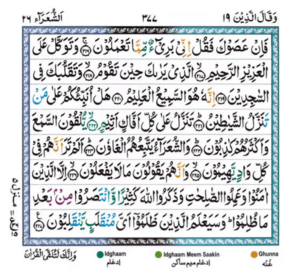 وَقَالَ الَّذِيْنَ ١٩ ٣٧٧ اَلشُّعَرَآء ٢٦
فَاِنْ عَصَوْكَ فَقُلْ اِنِّيْ بَرِيْٓءٌ مِّمَّا تَعْمَلُوْنَ ﴿٢١٦﴾ وَتَوَكَّلْ عَلَى
الْعَزِيْزِ الرَّحِيْمِ ﴿٢١٧﴾ الَّذِيْ يَرٰىكَ حِيْنَ تَقُوْمُ ﴿٢١٨﴾ وَتَقَلُّبَكَ فِي
السّٰجِدِيْنَ ﴿٢١٩﴾ اِنَّهٗ هُوَ السَّمِيْعُ الْعَلِيْمُ ﴿٢٢٠﴾ هَلْ اُنَبِّئُكُمْ عَلٰى مَنْ
تَنَزَّلُ الشَّيٰطِيْنُ ﴿٢٢١﴾ تَنَزَّلُ عَلٰى كُلِّ اَفَّاكٍ اَثِيْمٍ ﴿٢٢٢﴾ يُّلْقُوْنَ السَّمْعَ
وَاَكْثَرُهُمْ كٰذِبُوْنَ ﴿٢٢٣﴾ وَالشُّعَرَآءُ يَتَّبِعُهُمُ الْغَاوٗنَ ﴿٢٢٤﴾ اَلَمْ تَرَ اَنَّهُمْ فِيْ
كُلِّ وَادٍ يَّهِيْمُوْنَ ﴿٢٢٥﴾ وَاَنَّهُمْ يَقُوْلُوْنَ مَا لَا يَفْعَلُوْنَ ﴿٢٢٦﴾ اِلَّا الَّذِيْنَ
اٰمَنُوْا وَعَمِلُوا الصّٰلِحٰتِ وَذَكَرُوا اللّٰهَ كَثِيْرًا وَّانْتَصَرُوْا مِنْۢ بَعْدِ
مَا ظُلِمُوْا وَسَيَعْلَمُ الَّذِيْنَ ظَلَمُوْٓا اَيَّ مُنْقَلَبٍ يَّنْقَلِبُوْنَ ﴿٢٢٧﴾
وَاِنَّكَ لَتُلَقَّى الْقُرْاٰنَ
Idghaam Idghaam Meem Saakin Ghunna
ادغام ادغام میم ساکن غنّہ